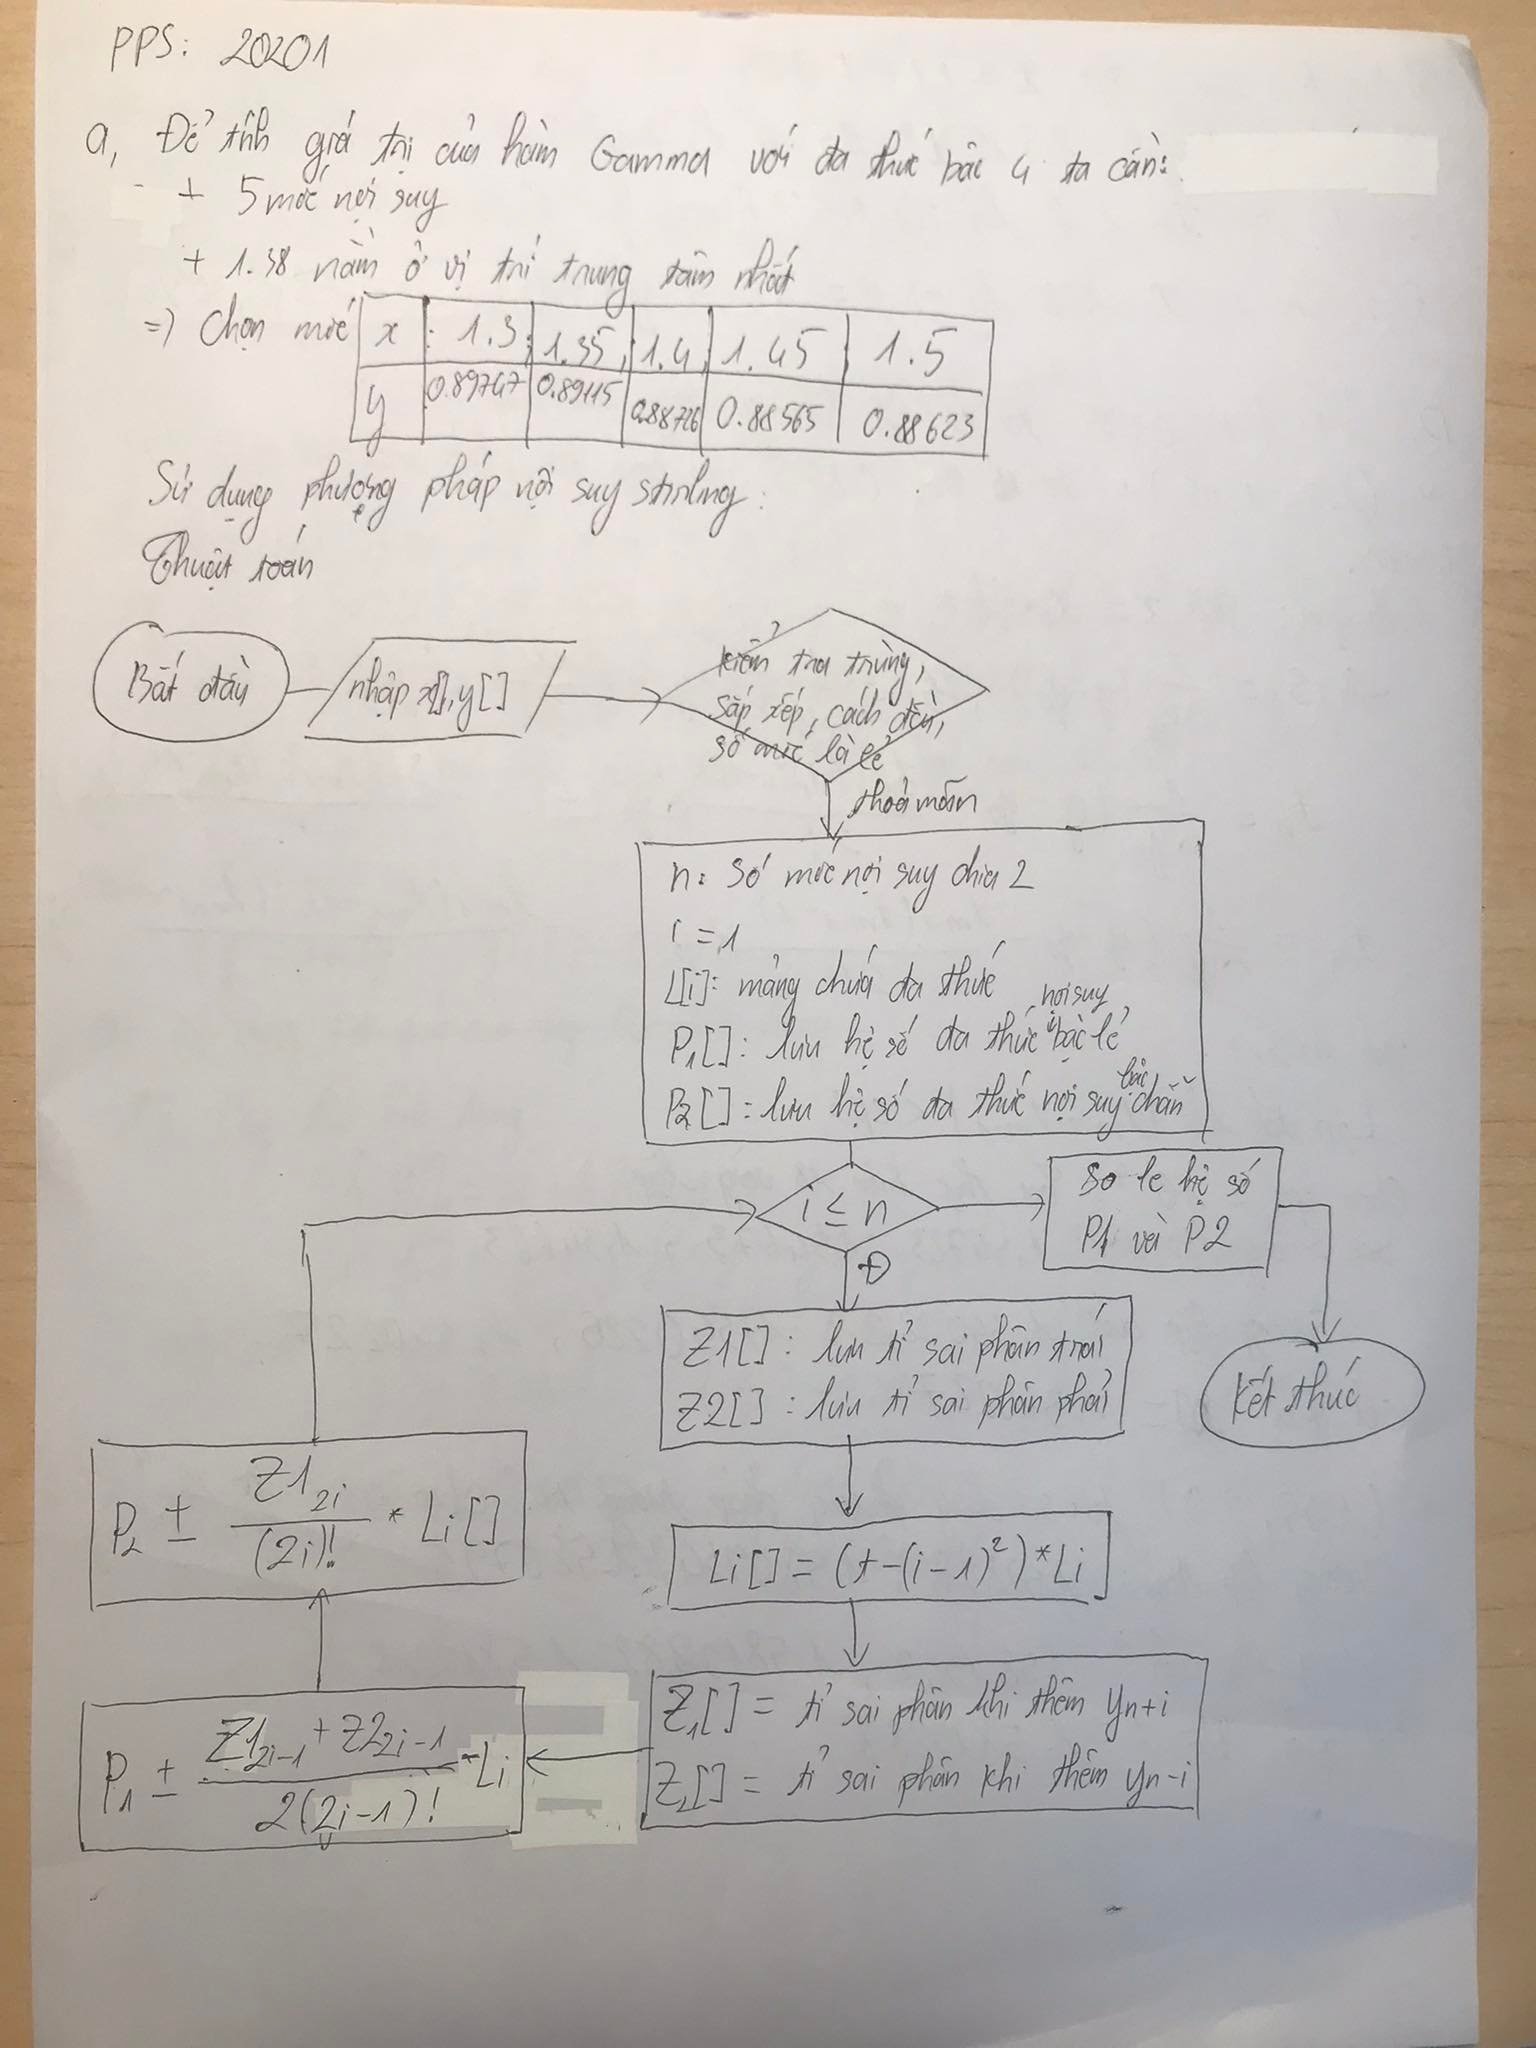 PPS: 20201
a, Để tính giá trị của hàm Gamma với đa thức bậc 4 ta cần:
+ 5 mốc nội suy
+ 1.38 nằm ở vị trí trung tâm nhất
=) Chọn mốc x : 1.3; 1.35, 1.4, 1.45 1.5
y 0.89747 0.89115 0.88726 0.88565 0.88623
Sử dụng phương pháp nội suy stirling:
Thuật toán
Bắt đầu
nhập x[], y[]
kiểm tra trùng,
sắp xếp, cách đều,
số mốc là lẻ
thoả mãn
n: số mốc nội suy chia 2
i = 1
L[i]: mảng chứa đa thức
P1[]: lưu hệ số đa thức nội suy bậc lẻ
P2[]: lưu hệ số đa thức nội suy bậc chẵn
i ≤ n
So le hệ số
P1 và P2
Đ
Z1[]: lưu tỉ sai phân trái
Z2[]: lưu tỉ sai phân phải
Kết thúc
P2 ± Z1 2i / (2i)! * Li[]
Li[] = (t-(i-1)²)*Li
Z1[] = tỉ sai phân khi thêm yn+i
Z2[] = tỉ sai phân khi thêm yn-i
P1 ± Z1 2i-1 + Z2 2i-1 / 2(2i-1)! * Li